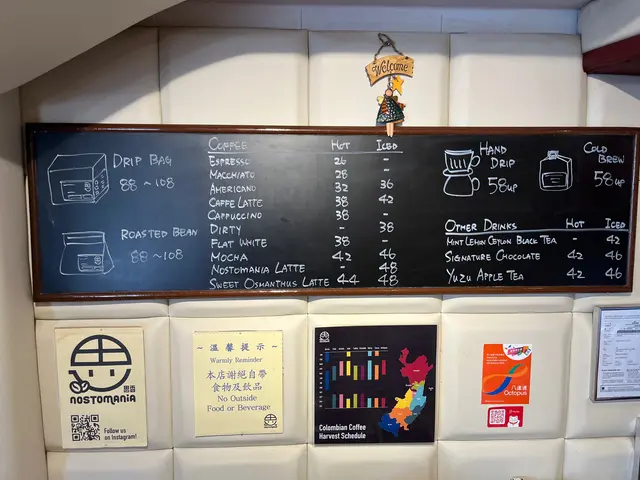 Welcome
DRIP BAG
88 ~ 108
ROASTED BEAN
88 ~ 108
COFFEE HOT ICED
ESPRESSO 26 -
MACCHIATO 28 -
AMERICANO 32 36
CAFFE LATTE 38 42
CAPPUCCINO 38 -
DIRTY - 38
FLAT WHITE 38 -
MOCHA 42 46
NOSTOMANIA LATTE - 48
SWEET OSMANTHUS LATTE 44 48
HAND DRIP
58 UP
COLD BREW
58 UP
OTHER DRINKS HOT ICED
MINT LEMON CEYLON BLACK TEA - 42
SIGNATURE CHOCOLATE 42 46
YUZU APPLE TEA 42 46
思啡
NOSTOMANIA
Follow us
on Instagram!
~ 温馨提示 ~
Warmly Reminder
本店謝絕自帶
食物及飲品
No Outside
Food or Beverage
Colombian Coffee
Harvest Schedule
八達通
Octopus